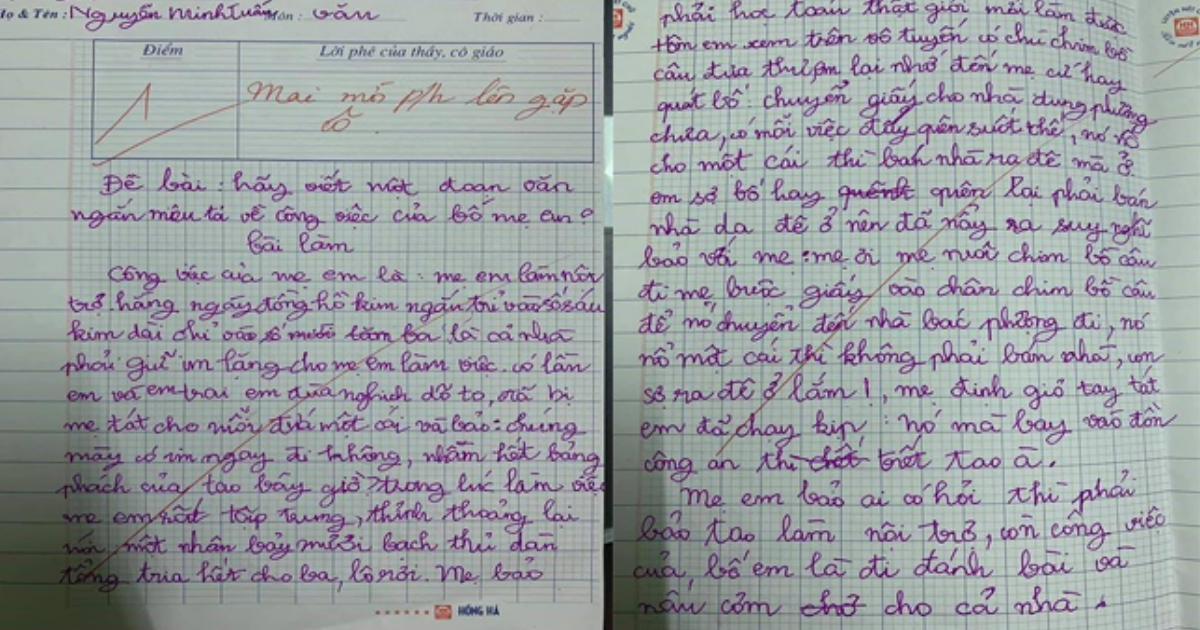 Họ & Tên: Nguyễn Minh Tuấn Môn: văn Thời gian:
Điểm Lời phê của thầy, cô giáo
1 Mai mời p/h lên gặp
cô
Đề bài: hãy viết một đoạn văn
ngắn miêu tả về công việc của bố mẹ em?
bài làm
Công việc của mẹ em là: mẹ em làm nội
trợ. hằng ngày đồng hồ kim ngắn trỉ vào số sáu
kim dài chỉ vào số mười tăm ba là cả nhà
phải giữ im lặng cho mẹ em làm việc. có lần
em và em trai em đùa nghịch dỡ to, rồi bị
mẹ tát cho mỗi đứa một cái và bảo: chúng
mày có im ngay đi không, nhầm hết bảng
phách của tao bây giờ? trong lúc làm việc
mẹ em rất tập trung, thỉnh thoảng lại
nói một nhân bảy mười bạch thủ dàn
tổng tria hết cho ba, lô rơi. Mẹ bảo
phải học toán thật giỏi mới làm được
hôm em xem trên vô tuyến có chú chim bồ
câu đưa thư em lại nhớ đến mẹ cứ hay
quát bố: chuyển giấy cho nhà dung phường
chưa, có mỗi việc đấy quên suốt thế, nó nổ
cho một cái thì bán nhà ra đê mà ở.
em sợ bố hay quên lại phải bán
nhà da đê ở nên đã nảy ra suy nghĩ
bảo với mẹ: mẹ ơi mẹ nuôi chim bồ câu
đi mẹ, buộc giấy vào chân chim bồ câu
để nó chuyển đến nhà bác phường đi, nó
nổ một cái thì không phải bán nhà, con
sợ ra đê ở lắm!, mẹ định giơ tay tát
em đã chạy kịp: nó mà bay vào đồn
công an thì trết tao à.
Mẹ em bảo ai có hỏi thì phải
bảo tao làm nội trợ, còn công việc
của, bố em là đi đánh bài và
nấu cơm cho cả nhà.
HỒNG HÀ